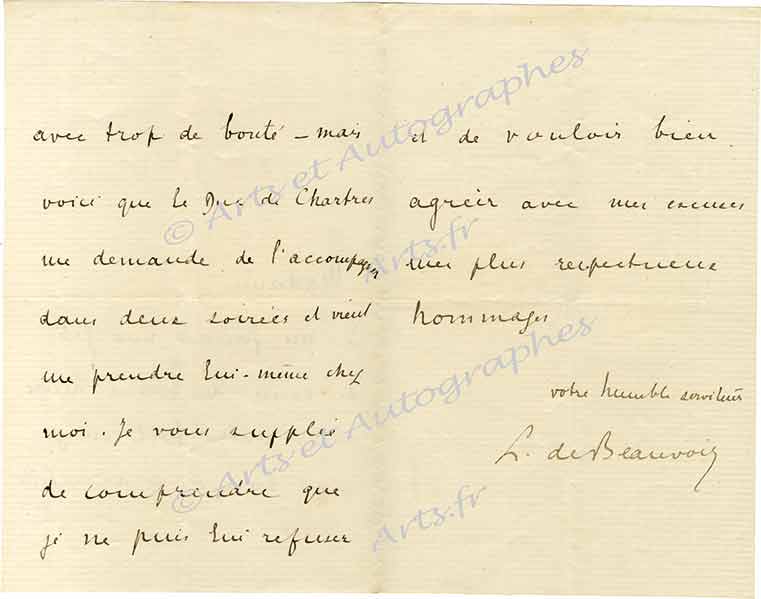 avec trop de bonté – mais
voici que le Duc de Chartres
me demande de l'accompagner
dans deux soirées et vient
me prendre lui-même chez
moi. Je vous supplie
de comprendre que
je ne puis lui refuser
et de vouloir bien
agréer avec mes excuses
mes plus respectueux
hommages
votre humble serviteur
L. de Beauvoir
© Arts et Autographes
Arts.fr
© Arts et Autographes
Arts.fr